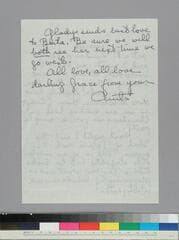 Gladys sends best love
to Berta. Be sure we will
both see her next time we
go west.
All love, all love
darling Grace from your